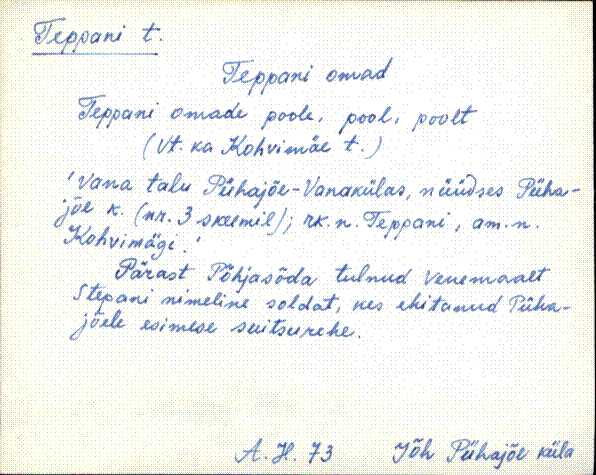 Teppani t.
Teppani omad
Teppani omade poole, pool, poolt
(Vt. ka Kohvimäe t.)
'Vana talu Pühajõe-Vanakülas, nüüdses Püha-
jõe k. (nr. 3 skeemil); rk. n. Teppani, am. n.
Kohvimägi.'
Pärast Põhjasõda tulnud Venemaalt
Stepani nimeline soldat, kes ehitanud Püha-
jõele esimese suitsurehe.
A. H. 73 Jõh Pühajõe küla